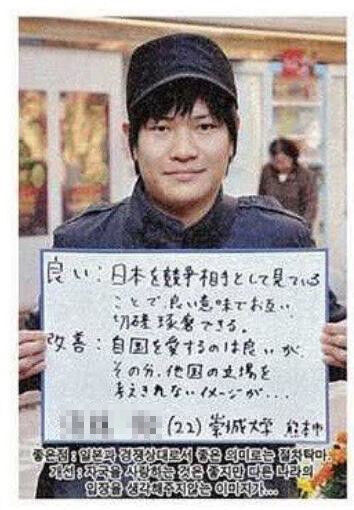 良い：日本を競争相手として見ている
ことで良い意味でお互い
切磋琢磨できる。
改善：自国を愛するのは良いが
その分、他国の立場を
考えきれないイメージが...
(22) 崇城大学 熊本市
좋은점 : 일본과 경쟁상대로서 좋은 의미로는 절차탁마
개선 : 자국을 사랑하는 것은 좋지만 다른 나라의
입장을 생각해주지않는 이미지가...